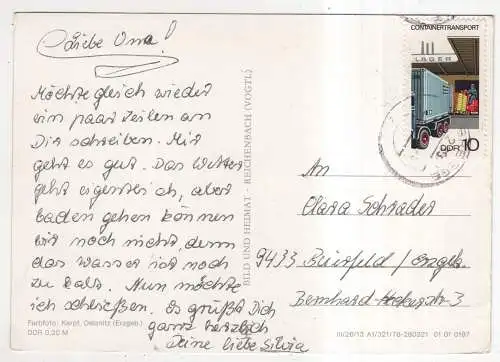 Liebe Oma!
Möchte gleich wieder
ein paar Zeilen an
Dir schreiben. Mir
geht es gut. Das Wetter
geht eigentlich, aber
baden gehen können
wir noch nicht, denn
das Wasser ist noch
zu kalt. Nun möchte
ich schließen. Es grüßt Dich
ganz herzlich
Deine liebe Silvia
Farbfoto: Karpf, Oelsnitz (Erzgeb.)
DDR 0,20 M
BILD UND HEIMAT - REICHENBACH (VOGTL)
CONTAINERTRANSPORT
LAGER
DDR 10
An
Clara Schrader
9433 / Erzgeb.
Bernhard- -3
III/26/13 A1/321/78-280321 01 01 0197